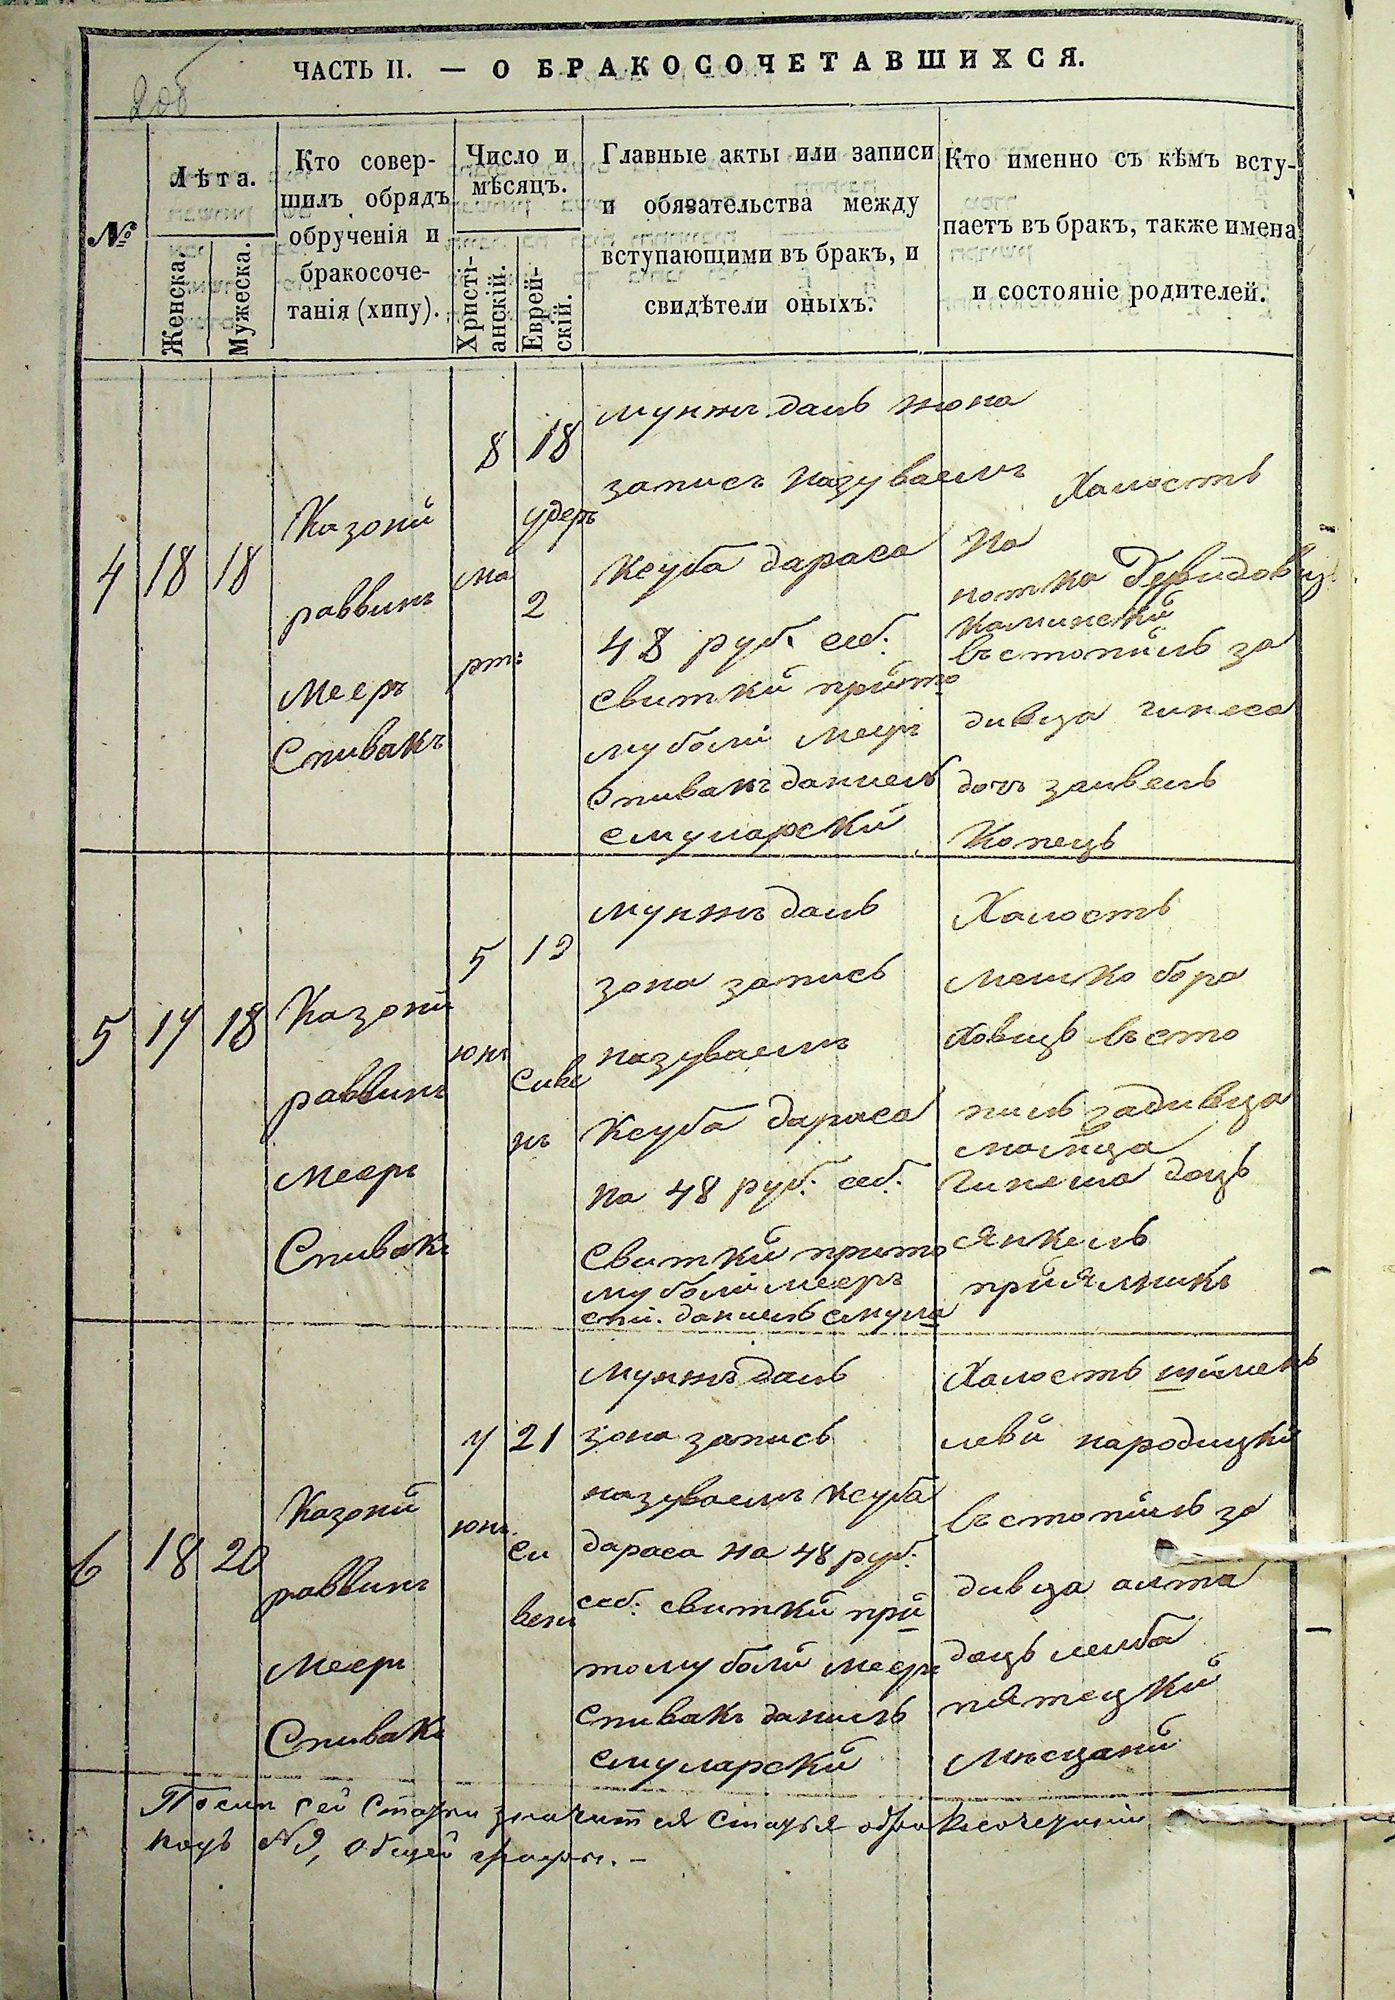 ЧАСТЬ II. — О БРАКОСОЧЕТАВШИХСЯ.
№
Лѣта.
Женска.
Мужеска.
Кто совер-
шилъ обрядъ
обрученія и
бракосоче-
танія (хипу).
Число и
мѣсяцъ.
Христі-
анскій.
Еврей-
скій.
Главные акты или записи
и обязательства между
вступающими въ бракъ, и
свидѣтели оныхъ.
Кто именно съ кѣмъ всту-
паетъ въ бракъ, также имена
и состояніе родителей.
4
18
18
Казоний
раввинъ
Мееръ
Спивакъ
8
ма
рт:
18
удеръ
2
мужъ далъ жона
записъ назуваемъ
Ксуба дараса
48 руб. себ.
свиткй прйто
му болй Мееръ
Спивакъ даниель
смуларскй
Халость
но
каминскй
въстопйлъ за
дивца гинеса
дочъ заивель
Копець
5
17
18
Казонй
раввинъ
Мееръ
Спивакъ
5
юнъ
12
сива
нъ
мужъ далъ
зона запись
назуваемъ
Ксуба дараса
на 48 руб: себ.
Свиткй прито
му болй мееръ
спи. даниель смула
Халость
мошко боро
ховиць въсто
пилъ за дивца
Гинеша доць
Янкель
прйямникъ
6
18
20
Казонй
раввинъ
Мееръ
Спивакъ
7
юнъ
21
си
венъ
Мужъ далъ
зона запись
назуваемъ Ксуба
дараса на 48 руб.
себ: свиткй прй
тому болй мееръ
Спивакъ даниль
смуларскй
Халость шймень
левй народицкй
въстопйлъ за
дивца алта
доць лейба
пятецкй
Мьсцанй
Послѣ сей Статьи значится Статья о бракосочетаніи
подъ №9, общей графы. —